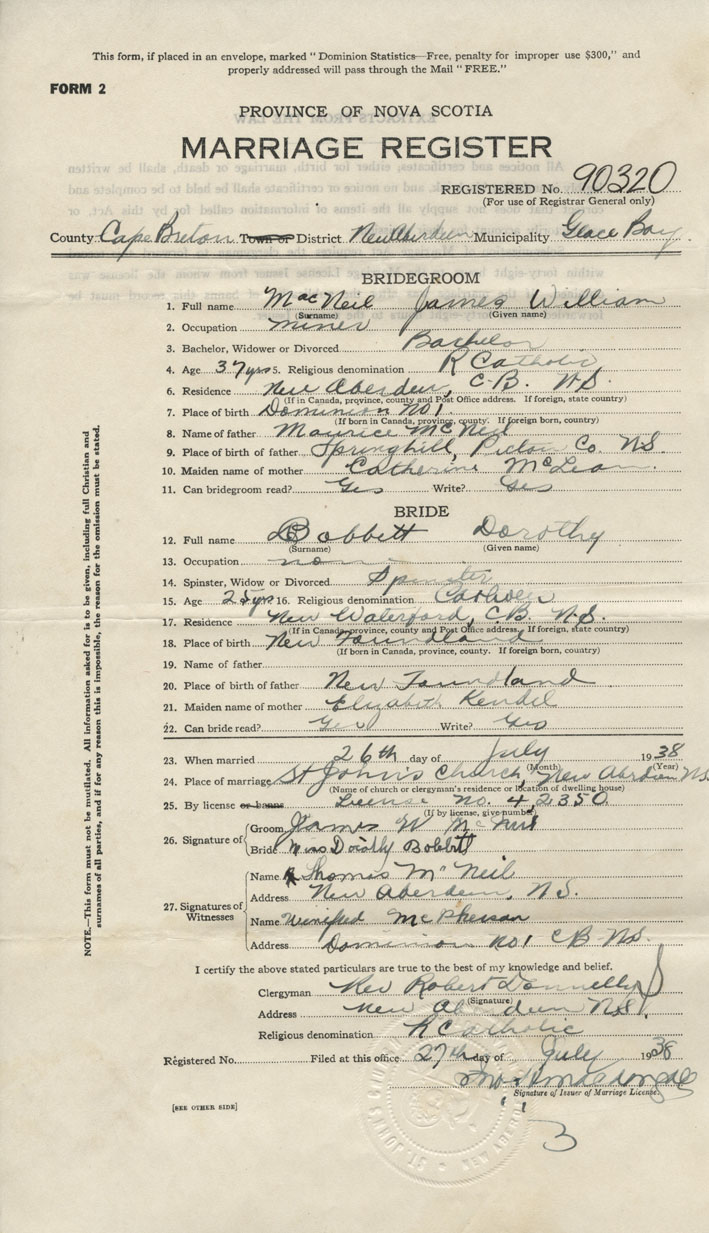 This form, if placed in an envelope, marked "Dominion Statistics—Free, penalty for improper use $300," and
properly addressed will pass through the Mail "FREE."
FORM 2
PROVINCE OF NOVA SCOTIA
MARRIAGE REGISTER
REGISTERED No. 90320
(For use of Registrar General only)
County Cape Breton Town or District New Aberdeen Municipality Glace Bay
BRIDEGROOM
1. Full name MacNeil James William
(Surname) (Given name)
2. Occupation miner
3. Bachelor, Widower or Divorced Bachelor
4. Age 37 yrs 5. Religious denomination R Catholic
6. Residence New Aberdeen, C.B. N.S.
(If in Canada, province, county and Post Office address. If foreign, state country)
7. Place of birth Dominion No 1.
(If born in Canada, province, county. If foreign born, country)
8. Name of father Maurice McNeil
9. Place of birth of father Springhill, Pictou Co. N.S.
10. Maiden name of mother Catherine McLean
11. Can bridegroom read? Yes Write? Yes
BRIDE
12. Full name Bobbett Dorothy
(Surname) (Given name)
13. Occupation none
14. Spinster, Widow or Divorced Spinster
15. Age 25 yrs 16. Religious denomination Catholic
17. Residence New Waterford, C.B. N.S.
(If in Canada, province, county and Post Office address. If foreign, state country)
18. Place of birth New Foundland
(If born in Canada, province, county. If foreign born, country)
19. Name of father
20. Place of birth of father New Foundland
21. Maiden name of mother Elizabeth Kendel
22. Can bride read? Yes Write? Yes
23. When married 26th day of July 1938
(Month) (Year)
24. Place of marriage St John's Church, New Aberdeen N.S.
(Name of church or clergyman's residence or location of dwelling house)
25. By license or banns License No. 42350
(If by license, give number)
26. Signature of Groom James W McNeil
Bride Miss Dorothy Bobbett
27. Signatures of Witnesses
Name Thomas McNeil
Address New Aberdeen, N.S.
Name Winifred McPherson
Address Dominion No 1 C B N.S.
I certify the above stated particulars are true to the best of my knowledge and belief.
Clergyman Rev Robert Donnelly
(Signature)
Address New Aberdeen N.S.
Religious denomination R Catholic
Registered No. Filed at this office 27th day of July 1938
Signature of Issuer of Marriage License.
[SEE OTHER SIDE]
3
NOTE.—This form must not be mutilated. All information asked for is to be given, including full Christian and
surnames of all parties, and if for any reason this is impossible, the reason for the omission must be stated.